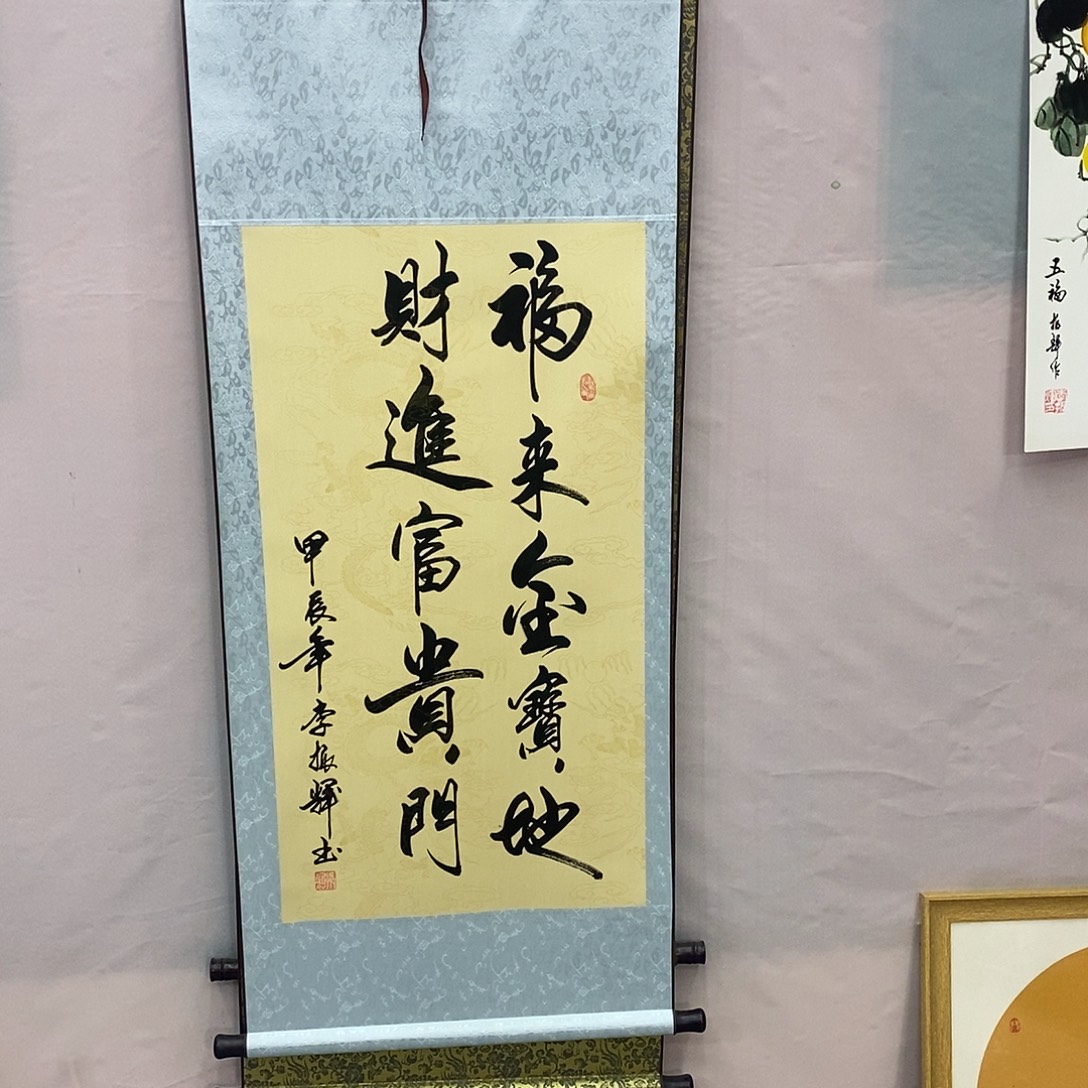 福来金寶地
財進富貴門
甲辰年李振輝书
五福